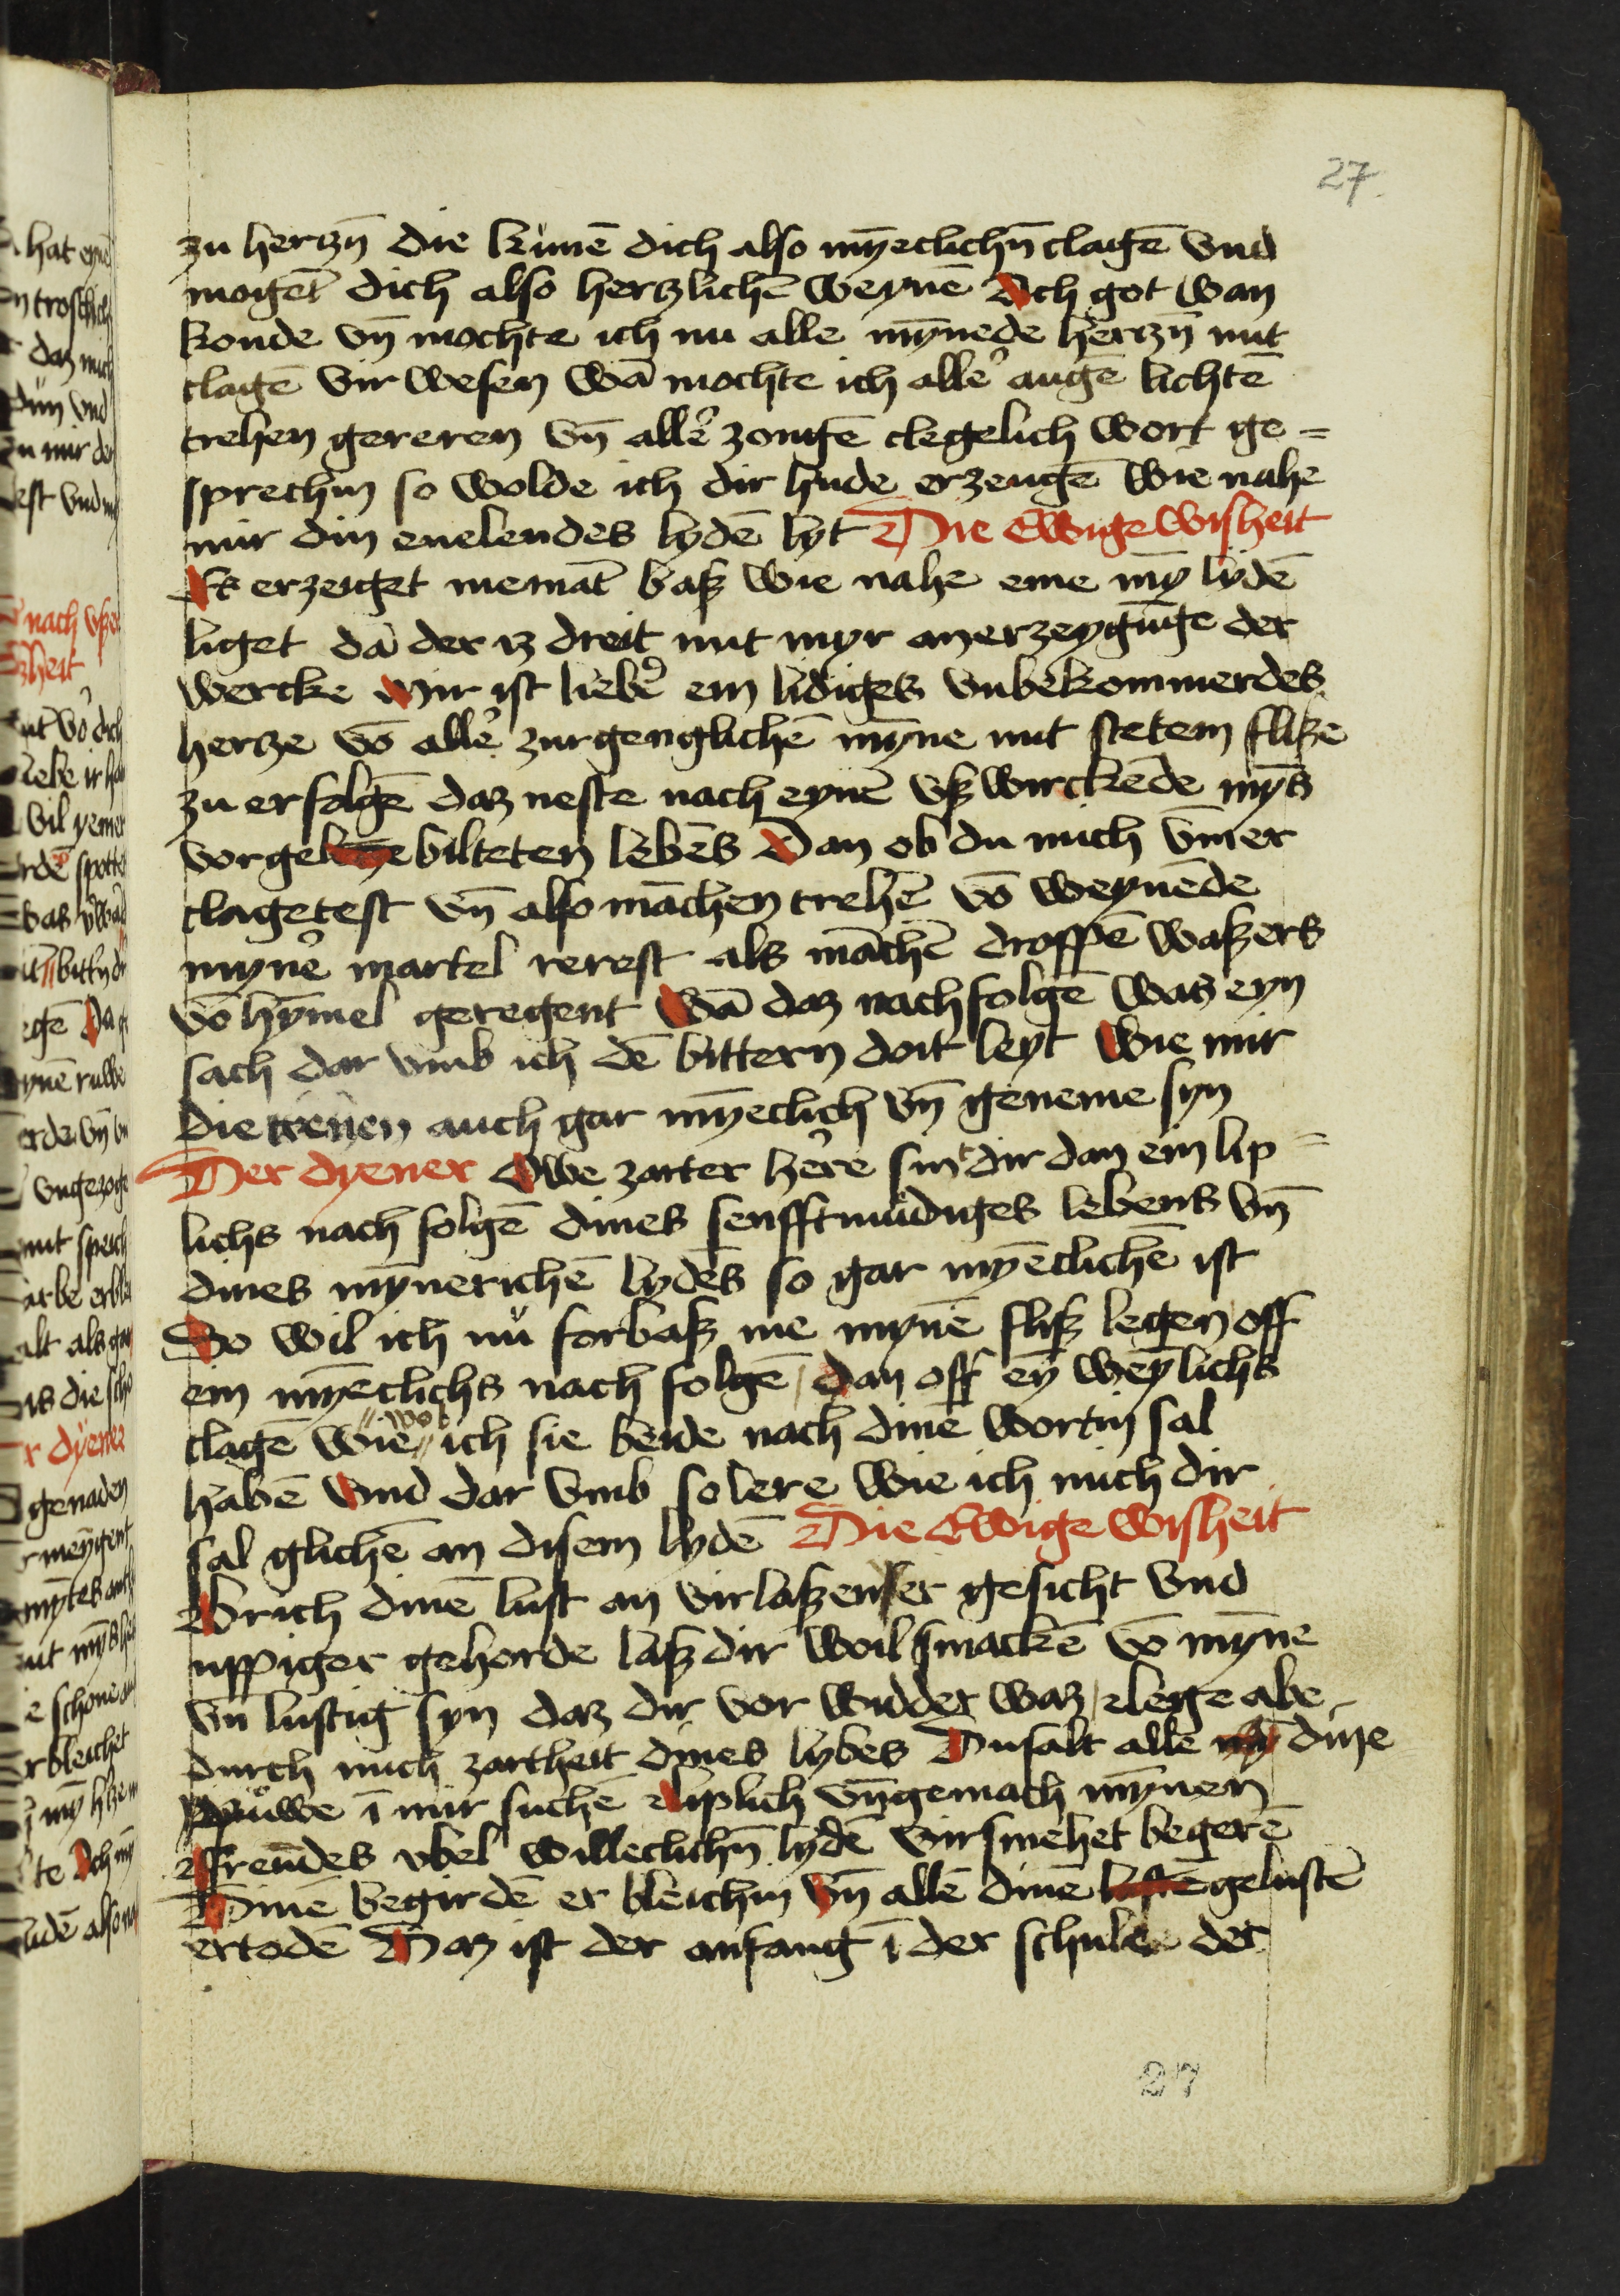 27.
zu hertzn̄ die kūnē dich also mȳeclichn̄ clagē vnd
mogēt dich also hertzlichē weynē Ach got wan
konde vn̄ mochte ich nu alle mȳnede hertzn̄ mit
clagē vir wesen wā mochte ich alle augē lichtē
trehen gereren vn̄ alle zongē clegelich wort ge=
sprechin so wolde ich dir hude erzeugē wie nahe
mir din enelendes lydē lyt Die Ewige wisheit
Es erzeiget niemāt baß wie nahe eme mȳ lydē
liget dā der iz dreit mit myr an erzeygūge der
wercke Mir ist lieber ein lidiges vnbekommerdes
hertze vō alle zurgenglichē mȳne mit stetem fliße
zu erfolgē daz neste nach eynē vßwirckēde mȳs
vorgebilteten lebēs Dan ob du mich vm̄er
clagetest vn̄ also māchen trehē vō weynēde
myne martel rerest als māchē droppē waßers
vō hymel geregent Wā daz nachfolgē was eyn
sach dar vmb ich dē bittern doit leyt Wie mir
die trenen auch gar mȳeclich vn̄ geneme syn
Der dyener Owe zarter here sint dir dan ein lip=
lichs nach folgē dines senfftmüdiges lebens vn̄
dines mȳnerichē lydēs so gar mȳeclichē ist
So wil ich nü forbaß me mynē fliß legen off
ein mȳeclichs nach folgē / dan off eȳ weylichs
clagē wie wol ich sie beide nach dinē wortin sal
habē Vnd dar vmb so lere wie ich mich dir
sal glichē an disem lydē Die Ewige wisheit
Brich dinē lust an virlaßenser gesicht vnd
uppiger gehorde laß dir woil smackē vō mȳne
vn̄ lustig syn daz dir vor widder waz / lege abe
durch mich zartheit dines lybes Du salt alle dine
rüwe ī mir suchē liplich vngemach mȳnen
ffremdes vbel willeclichn̄ lydē virsmehet begerē
Dinē begirdē er bleichin vn̄ allē dinē gelustē
ertodē Daz ist der anfang ī der schule der
27